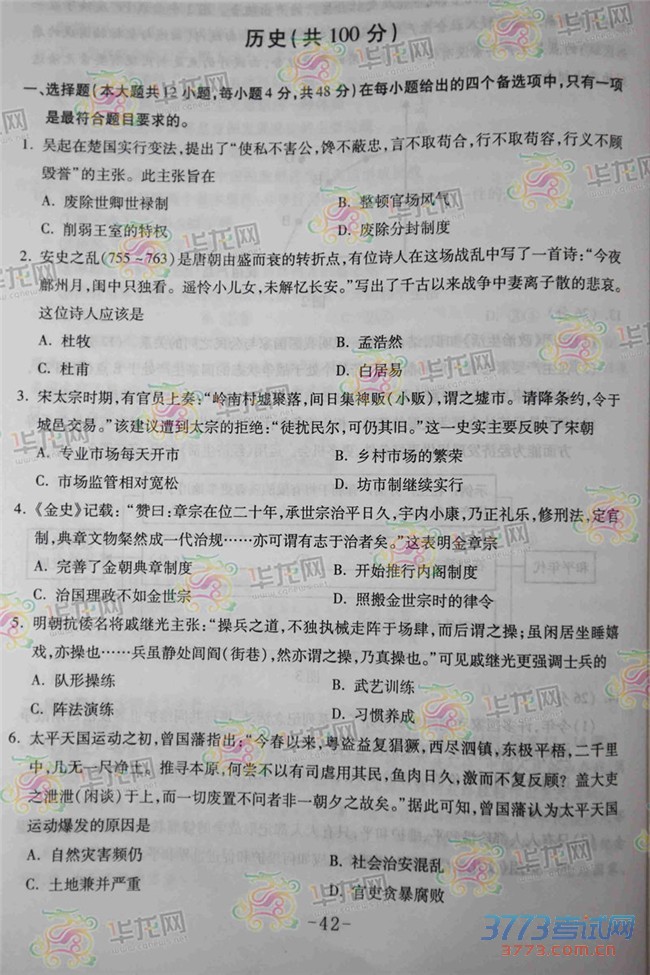 历史(共100分)
一、选择题(本大题共12小题,每小题4分,共48分)在每小题给出的四个备选项中,只有一项
是最符合题目要求的。
1. 吴起在楚国实行变法,提出了“使私不害公,馋不蔽忠,言不取苟合,行不取苟容,行义不顾
毁誉”的主张。此主张旨在
A. 废除世卿世禄制 B. 整顿官场风气
C. 削弱王室的特权 D. 废除分封制度
2. 安史之乱(755~763)是唐朝由盛而衰的转折点,有位诗人在这场战乱中写了一首诗:“今夜
鄜州月,闺中只独看。遥怜小儿女,未解忆长安。”写出了千古以来战争中妻离子散的悲哀。
这位诗人应该是
A. 杜牧 B. 孟浩然
C. 杜甫 D. 白居易
3. 宋太宗时期,有官员上奏:“岭南村墟聚落,间日集裨贩(小贩),谓之墟市。请降条约,令于
城邑交易。”该建议遭到太宗的拒绝:“徒扰民尔,可仍其旧。”这一史实主要反映了宋朝
A. 专业市场每天开市 B. 乡村市场的繁荣
C. 市场监管相对宽松 D. 坊市制继续实行
4. 《金史》记载:“赞曰:章宗在位二十年,承世宗治平日久,宇内小康,乃正礼乐,修刑法,定官
制,典章文物粲然成一代治规……亦可谓有志于治者矣。”这表明金章宗
A. 完善了金朝典章制度 B. 开始推行内阁制度
C. 治国理政不如金世宗 D. 照搬金世宗时的律令
5. 明朝抗倭名将戚继光主张:“操兵之道,不独执械走阵于场肆,而后谓之操;虽闲居坐睡嬉
戏,亦操也……兵虽静处闾阎(街巷),然亦谓之操,乃真操也。”可见戚继光更强调士兵的
A. 队形操练 B. 武艺训练
C. 阵法演练 D. 习惯养成
6. 太平天国运动之初,曾国藩指出:“今春以来,粤盗益复猖獗,西尽泗镇,东极平梧,二千里
中,几无一尺净土。推寻本原,何尝不以有司虐用其民,鱼肉日久,激而不复反顾?盖大吏
之泄泄(闲谈)于上,而一切废置不问者非一朝夕之故矣。”据此可知,曾国藩认为太平天国
运动爆发的原因是
A. 自然灾害频仍 B. 社会治安混乱
C. 土地兼并严重 D. 官吏贪暴腐败
-42-
华龙网
3773考试网
www.3773.com.cn